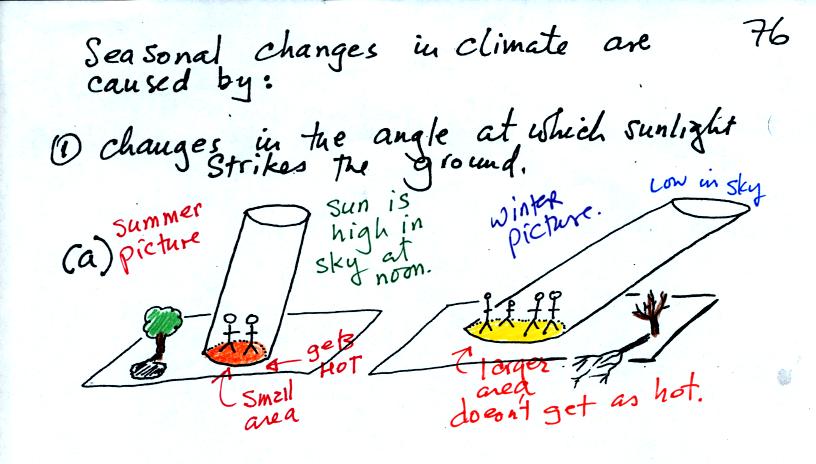 Seasonal changes in climate are
76
caused by:
① changes in the angle at which sunlight
strikes the ground.
(a) summer
picture
sun is
high in
sky at
noon.
winter
picture.
Low in sky
gets
HOT
small
area
larger
area,
doesn't get as hot.